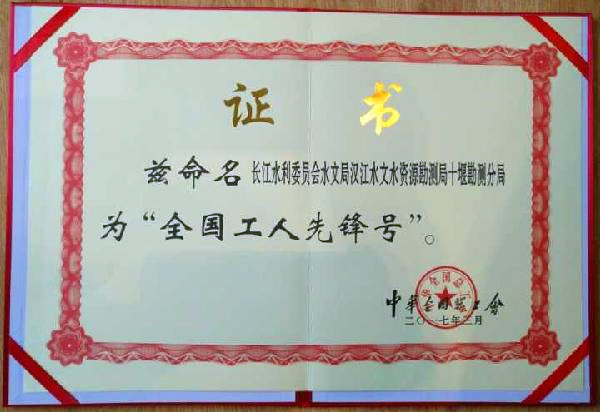 证书
兹命名长江水利委员会水文局汉江水文水资源勘测局十堰勘测分局
为“全国工人先锋号”。
中华全国总工会
二〇一七年二月